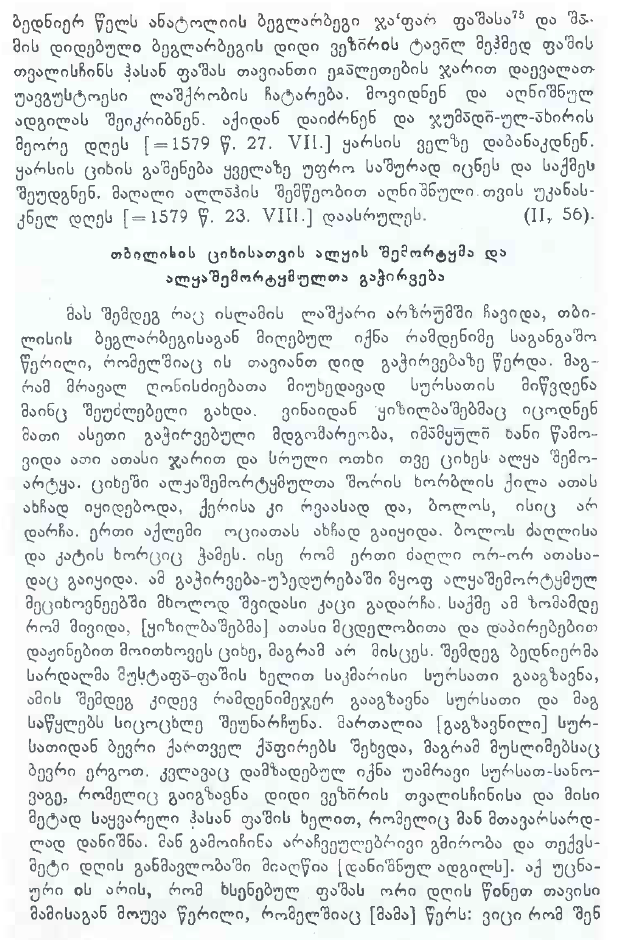 ბედნიერ წელს ანატოლიის ბეგლარბეგი ჯაʻფარ ფაშასა⁷⁵ და შა̄-
მის დიდებული ბეგლარბეგის დიდი ვეზირის ტავი̄ლ მეჰმედ ფაშის
თვალისჩინს ჰასან ფაშას თავიანთი ეიალეთების ჯარით დაევალათ
უავგუსტოესი ლაშქრობის ჩატარება. მოვიდნენ და აღნიშნულ
ადგილას შეიკრიბნენ. აქიდან დაიძრნენ და ჯუმადი̄-ულ-ახირის
მეორე დღეს [=1579 წ. 27. VII.] ყარსის ველზე დაბანაკდნენ.
ყარსის ციხის გაშენება ყველაზე უფრო საშურად იცნეს და საქმეს
შეუდგნენ. მაღალი ალლაჰის შემწეობით აღნიშნული თვის უკანას-
კნელ დღეს [=1579 წ. 23. VIII.] დაასრულეს. (II, 56).
თბილისის ციხისათვის ალყის შემორტყმა და
ალყაშემორტყმულთა გაჭირვება
მას შემდეგ რაც ისლამის ლაშქარი არზრუმში ჩავიდა, თბი-
ლისის ბეგლარბეგისაგან მიღებულ იქნა რამდენიმე საგანგაშო
წერილი, რომელშიაც ის თავიანთ დიდ გაჭირვებაზე წერდა. მაგ-
რამ მრავალ ღონისძიებათა მიუხედავად სურსათის მიწვდენა
მაინც შეუძლებელი გახდა. ვინაიდან ყიზილბაშებმაც იცოდნენ
მათი ასეთი გაჭირვებული მდგომარეობა, იმა̄მყული̄ ხანი წამო-
ვიდა ათი ათასი ჯარით და სრული ოთხი თვე ციხეს ალყა შემო-
არტყა. ციხეში ალყაშემორტყმულთა შორის ხორბლის ქილა ათას
ახჩად იყიდებოდა, ქერისა კი რვაასად და, ბოლოს, ისიც არ
დარჩა. ერთი აქლემი ოციათას ახჩად გაიყიდა. ბოლოს ძაღლისა
და კატის ხორციც ჭამეს. ისე რომ ერთი ძაღლი ორ-ორ ათასა-
დაც გაიყიდა. ამ გაჭირვება-უბედურებაში მყოფ ალყაშემორტყმულ
მეციხოვნეებში მხოლოდ შვიდასი კაცი გადარჩა. საქმე ამ ზომამდე
რომ მივიდა, [ყიზილბაშებმა] ათასი მცდელობითა და დაპირებებით
დაჟინებით მოითხოვეს ციხე, მაგრამ არ მისცეს. შემდეგ ბედნიერმა
სარდალმა მუსტაფა̄-ფაშის ხელით საკმარისი სურსათი გააგზავნა,
ამის შემდეგ კიდევ რამდენიმეჯერ გააგზავნა სურსათი და მაგ
საწყლებს სიცოცხლე შეუნარჩუნა. მართალია [გაგზავნილი] სურ-
სათიდან ბევრი ქართველ ქა̄ფირებს შეხვდა, მაგრამ მუსლიმებსაც
ბევრი ერგოთ. კვლავაც დამზადებულ იქნა უამრავი სურსათ-სანო-
ვაგე, რომელიც გაიგზავნა დიდი ვეზი̄რის თვალისჩინისა და მისი
მეტად საყვარელი ჰასან ფაშის ხელით, რომელიც მან მთავარსარდ-
ლად დანიშნა. მან გამოიჩინა არაჩვეულებრივი გმირობა და თექვს-
მეტი დღის განმავლობაში მიაღწია [დანიშნულ ადგილს]. აქ უცნა-
ური ის არის, რომ ხსენებულ ფაშას ორი დღის წინეთ თავისი
მამისაგან მოუვა წერილი, რომელშიაც [მამა] წერს: ვიცი რომ შენ